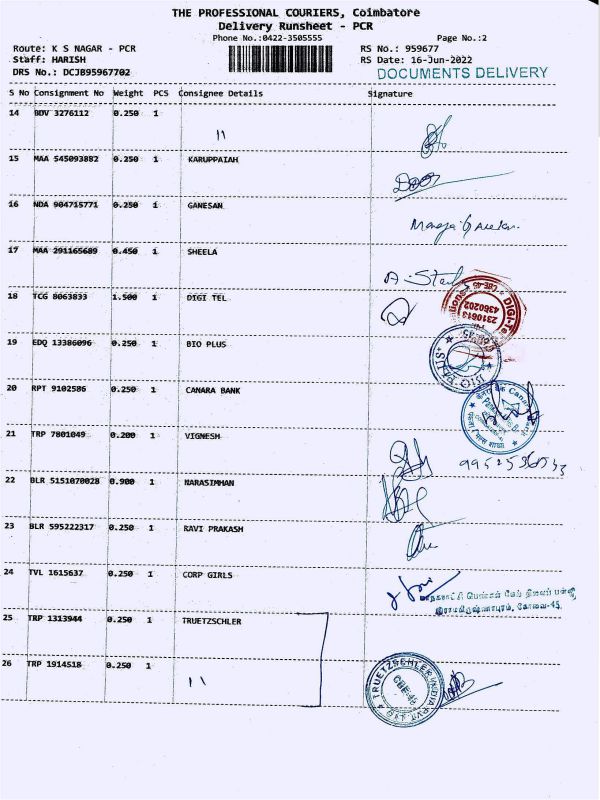 THE PROFESSIONAL COURIERS, Coimbatore
Delivery Runsheet - PCR
Phone No.:0422-3505555 Page No.:2
Route: K S NAGAR - PCR RS No.: 959677
Staff: HARISH RS Date: 16-Jun-2022
DRS No.: DCJB95967702 DOCUMENTS DELIVERY
S No Consignment No Weight PCS Consignee Details Signature
14 BDV 3276112 0.250 1
11
15 MAA 545093882 0.250 1 KARUPPAIAH
16 NDA 904715771 0.250 1 GANESAN
17 MAA 291165689 0.450 1 SHEELA
18 TCG 8063833 1.500 1 DIGI TEL
2310613
4360202
CBE-45
19 EDQ 13386096 0.250 1 BIO PLUS
20 RPT 9102586 0.250 1 CANARA BANK
21 TRP 7801049 0.200 1 VIGNESH
22 BLR 5151070028 0.900 1 NARASIMHAN
23 BLR 595222317 0.250 1 RAVI PRAKASH
24 TVL 1615637 0.250 1 CORP GIRLS
இராமகிருஷ்ணாபுரம், கோவை-45.
25 TRP 1313944 0.250 1 TRUETZSCHLER
26 TRP 1914518 0.250 1
11
TRUETZSCHLER INDIA PVT. LTD
CBE-45